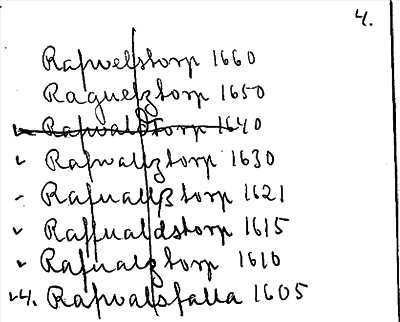 4.
Rafwelstorp 1660
Raguelztorp 1650
Rafwalstorp 1640
✓ Rafwallztorp 1630
- Rafuallßtorp 1621
✓ Raffualdstorp 1615
✓ Rafualztorp 1610
✓4. Rafwalsfalla 1605